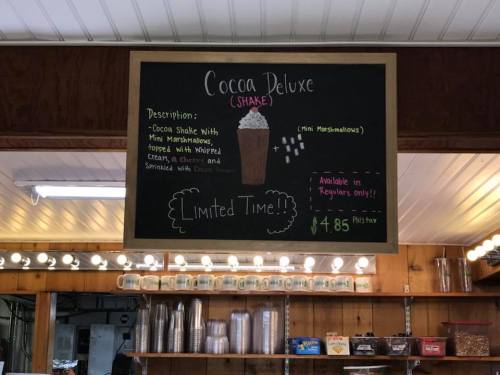 Cocoa Deluxe
(SHAKE)
Description:
-Cocoa Shake with
Mini Marshmallows,
topped with Whipped
Cream, a Cherry and
Sprinkled with Cocoa Powder
+
(Mini Marshmallows)
Available in
Regulars only!!
Limited Time!!
$4.85 Plus tax